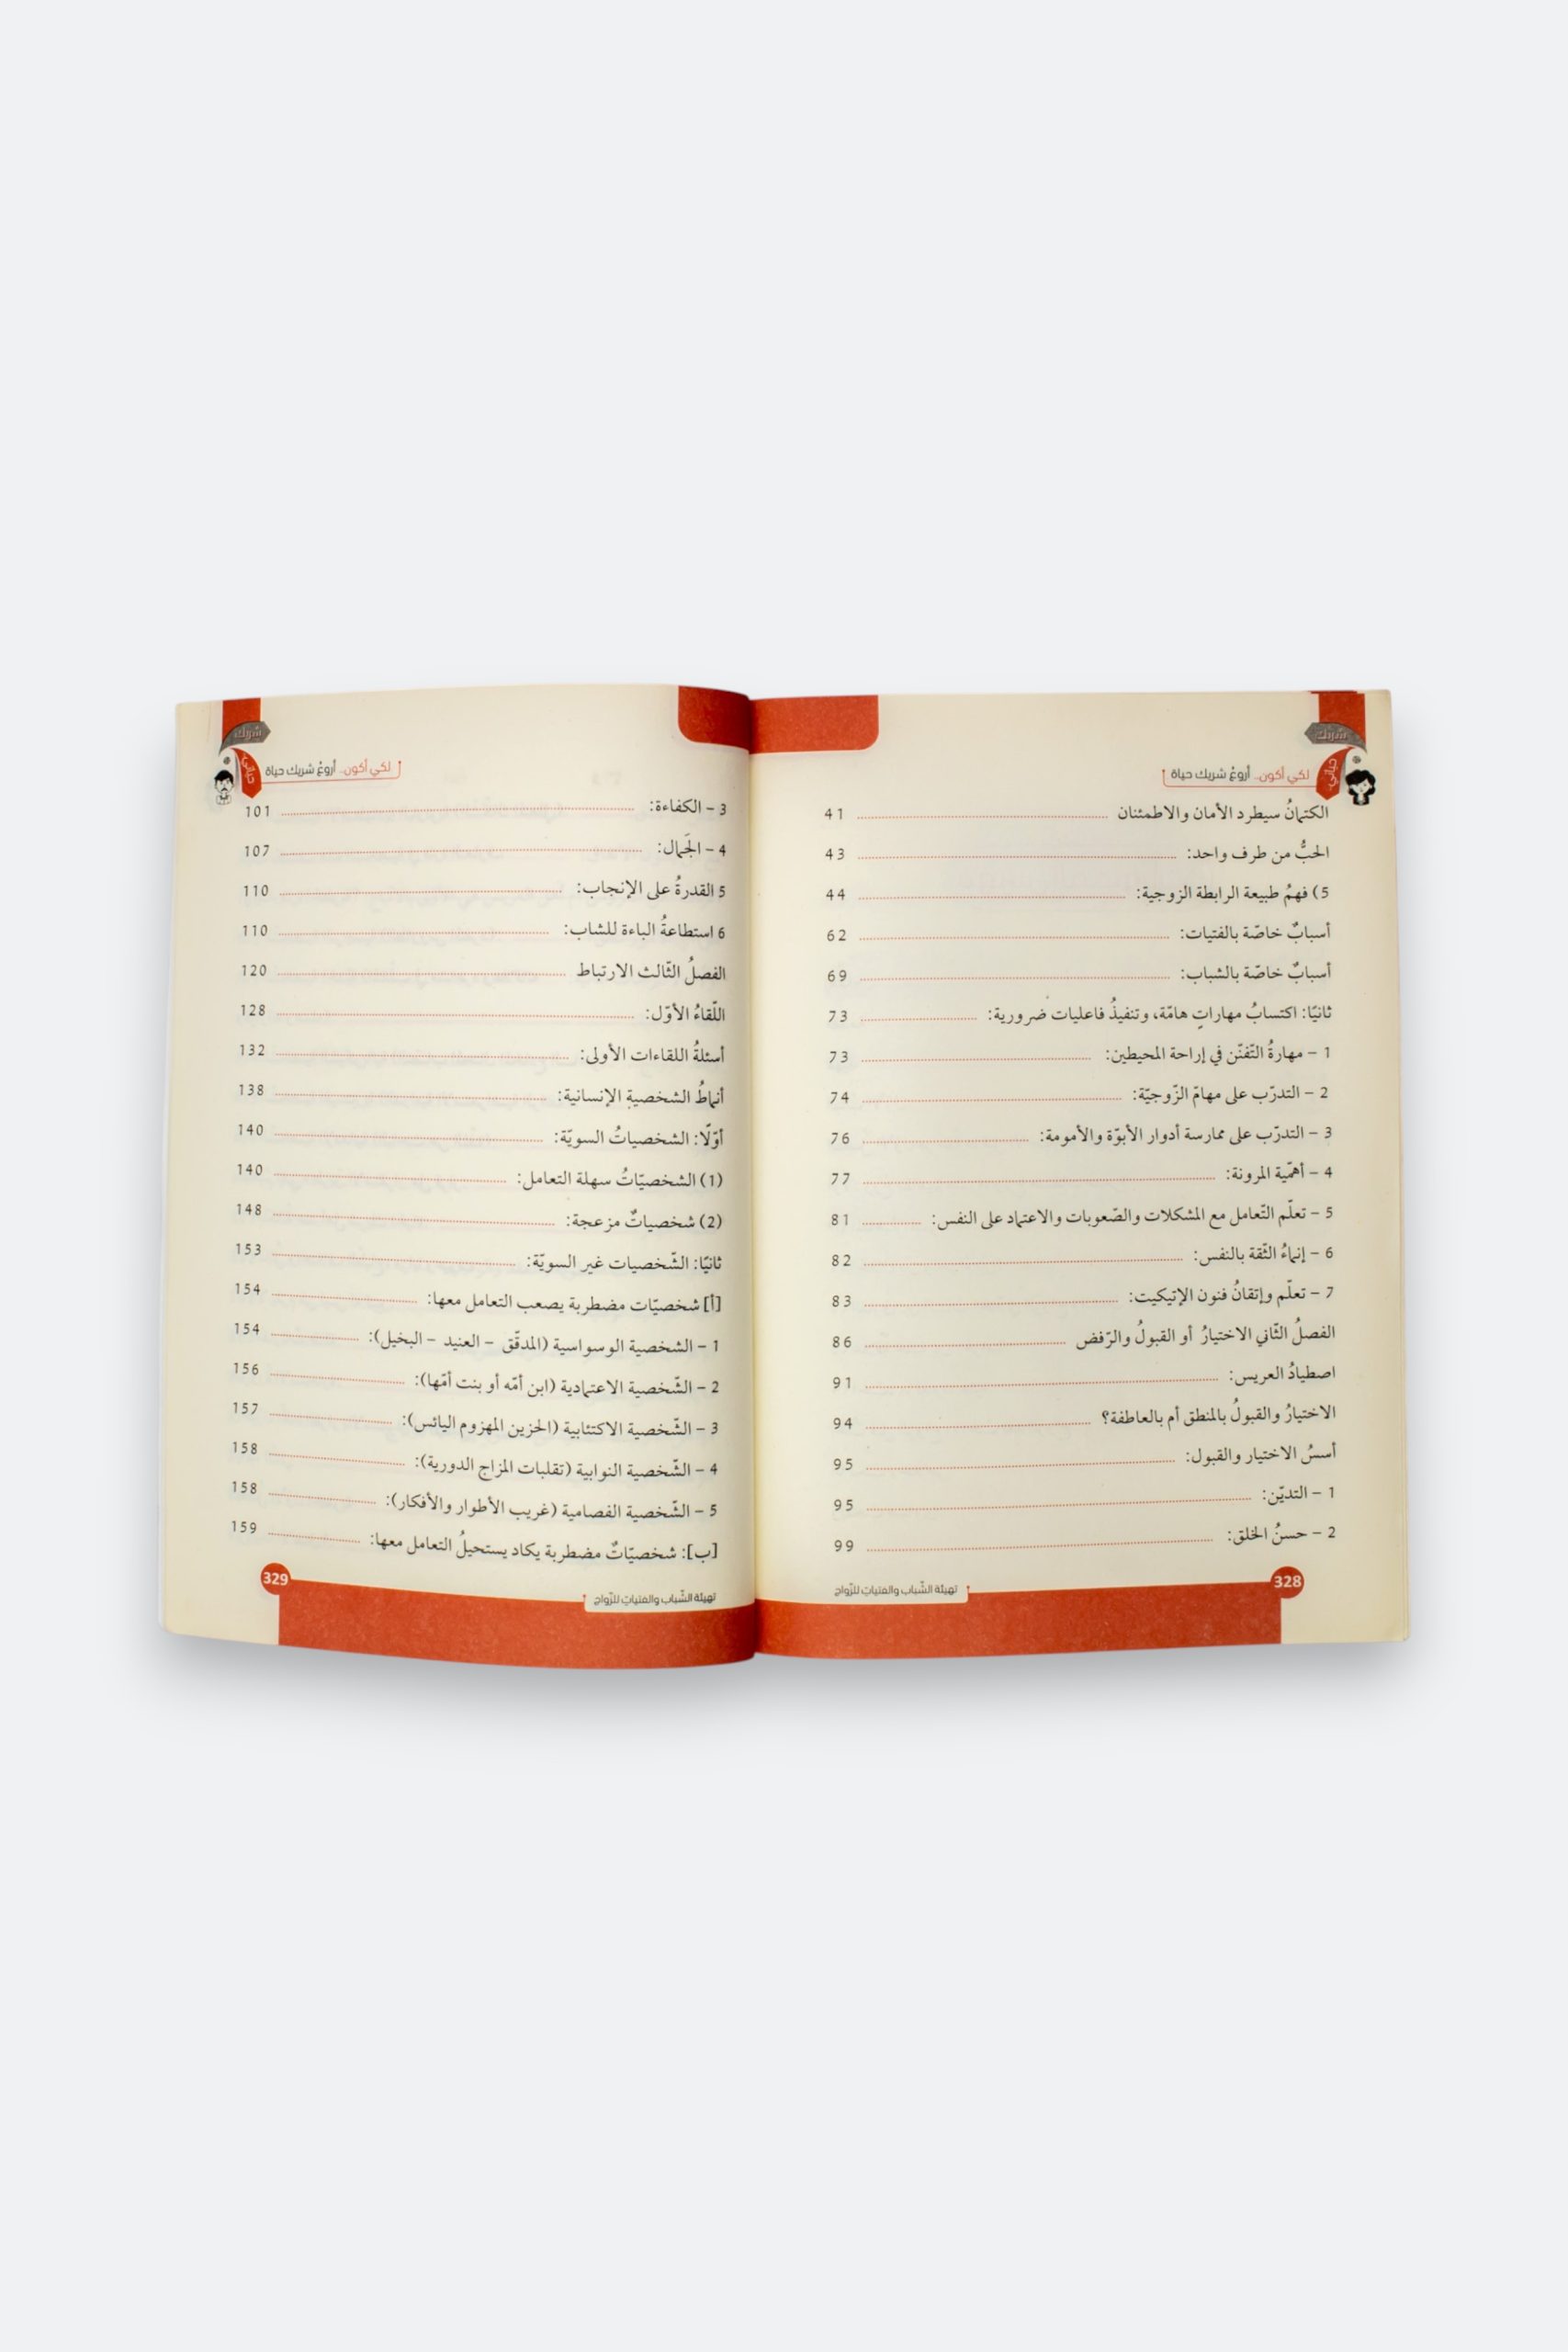 شريك
حياتي
لكي أكون.. أروعُ شريك حياة
الكتمانُ سيطرد الأمان والاطمئنان 41
الحبُّ من طرف واحد: 43
5) فهمُ طبيعة الرابطة الزوجية: 44
أسبابٌ خاصّة بالفتيات: 62
أسبابٌ خاصّة بالشباب: 69
ثانيًا: اكتسابُ مهاراتٍ هامّة، وتنفيذُ فاعليات ضرورية: 73
1 – مهارةُ التّفنّن في إراحة المحيطين: 73
2 – التدرّب على مهامّ الزّوجيّة: 74
3 – التدرّب على ممارسة أدوار الأبوّة والأمومة: 76
4 – أهمّية المرونة: 77
5 – تعلّم التّعامل مع المشكلات والصّعوبات والاعتماد على النفس: 81
6 – إنماءُ الثّقة بالنفس: 82
7 – تعلّم وإتقانُ فنون الإتيكيت: 83
الفصلُ الثّاني الاختيارُ أو القبولُ والرّفض 86
اصطيادُ العريس: 91
الاختيارُ والقبولُ بالمنطق أم بالعاطفة؟ 94
أسسُ الاختيار والقبول: 95
1 – التديّن: 95
2 – حسنُ الخلق: 99
328
تهيئة الشّباب والفتيات للزّواج
شريك
حياتي
لكي أكون.. أروعُ شريك حياة
3 – الكفاءة: 101
4 – الجَمال: 107
5 القدرةُ على الإنجاب: 110
6 استطاعةُ الباءة للشاب: 110
الفصلُ الثّالث الارتباط 120
اللّقاءُ الأوّل: 128
أسئلةُ اللقاءات الأولى: 132
أنماطُ الشخصيةِ الإنسانية: 138
أوّلًا: الشخصياتُ السويّة: 140
(1) الشخصيّاتُ سهلة التعامل: 140
(2) شخصياتٌ مزعجة: 148
ثانيًا: الشّخصيات غير السويّة: 153
[أ] شخصيّات مضطربة يصعب التعامل معها: 154
1 – الشخصية الوسواسية (المدقّق – العنيد – البخيل): 154
2 – الشّخصية الاعتمادية (ابن أمّه أو بنت أمّها): 156
3 – الشّخصية الاكتئابية (الحزين المهزوم اليائس): 157
4 – الشّخصية النوابية (تقلبات المزاج الدورية): 158
5 – الشّخصية الفصامية (غريب الأطوار والأفكار): 158
[ب]: شخصيّاتٌ مضطربة يكاد يستحيلُ التعامل معها: 159
329
تهيئة الشّباب والفتيات للزّواج